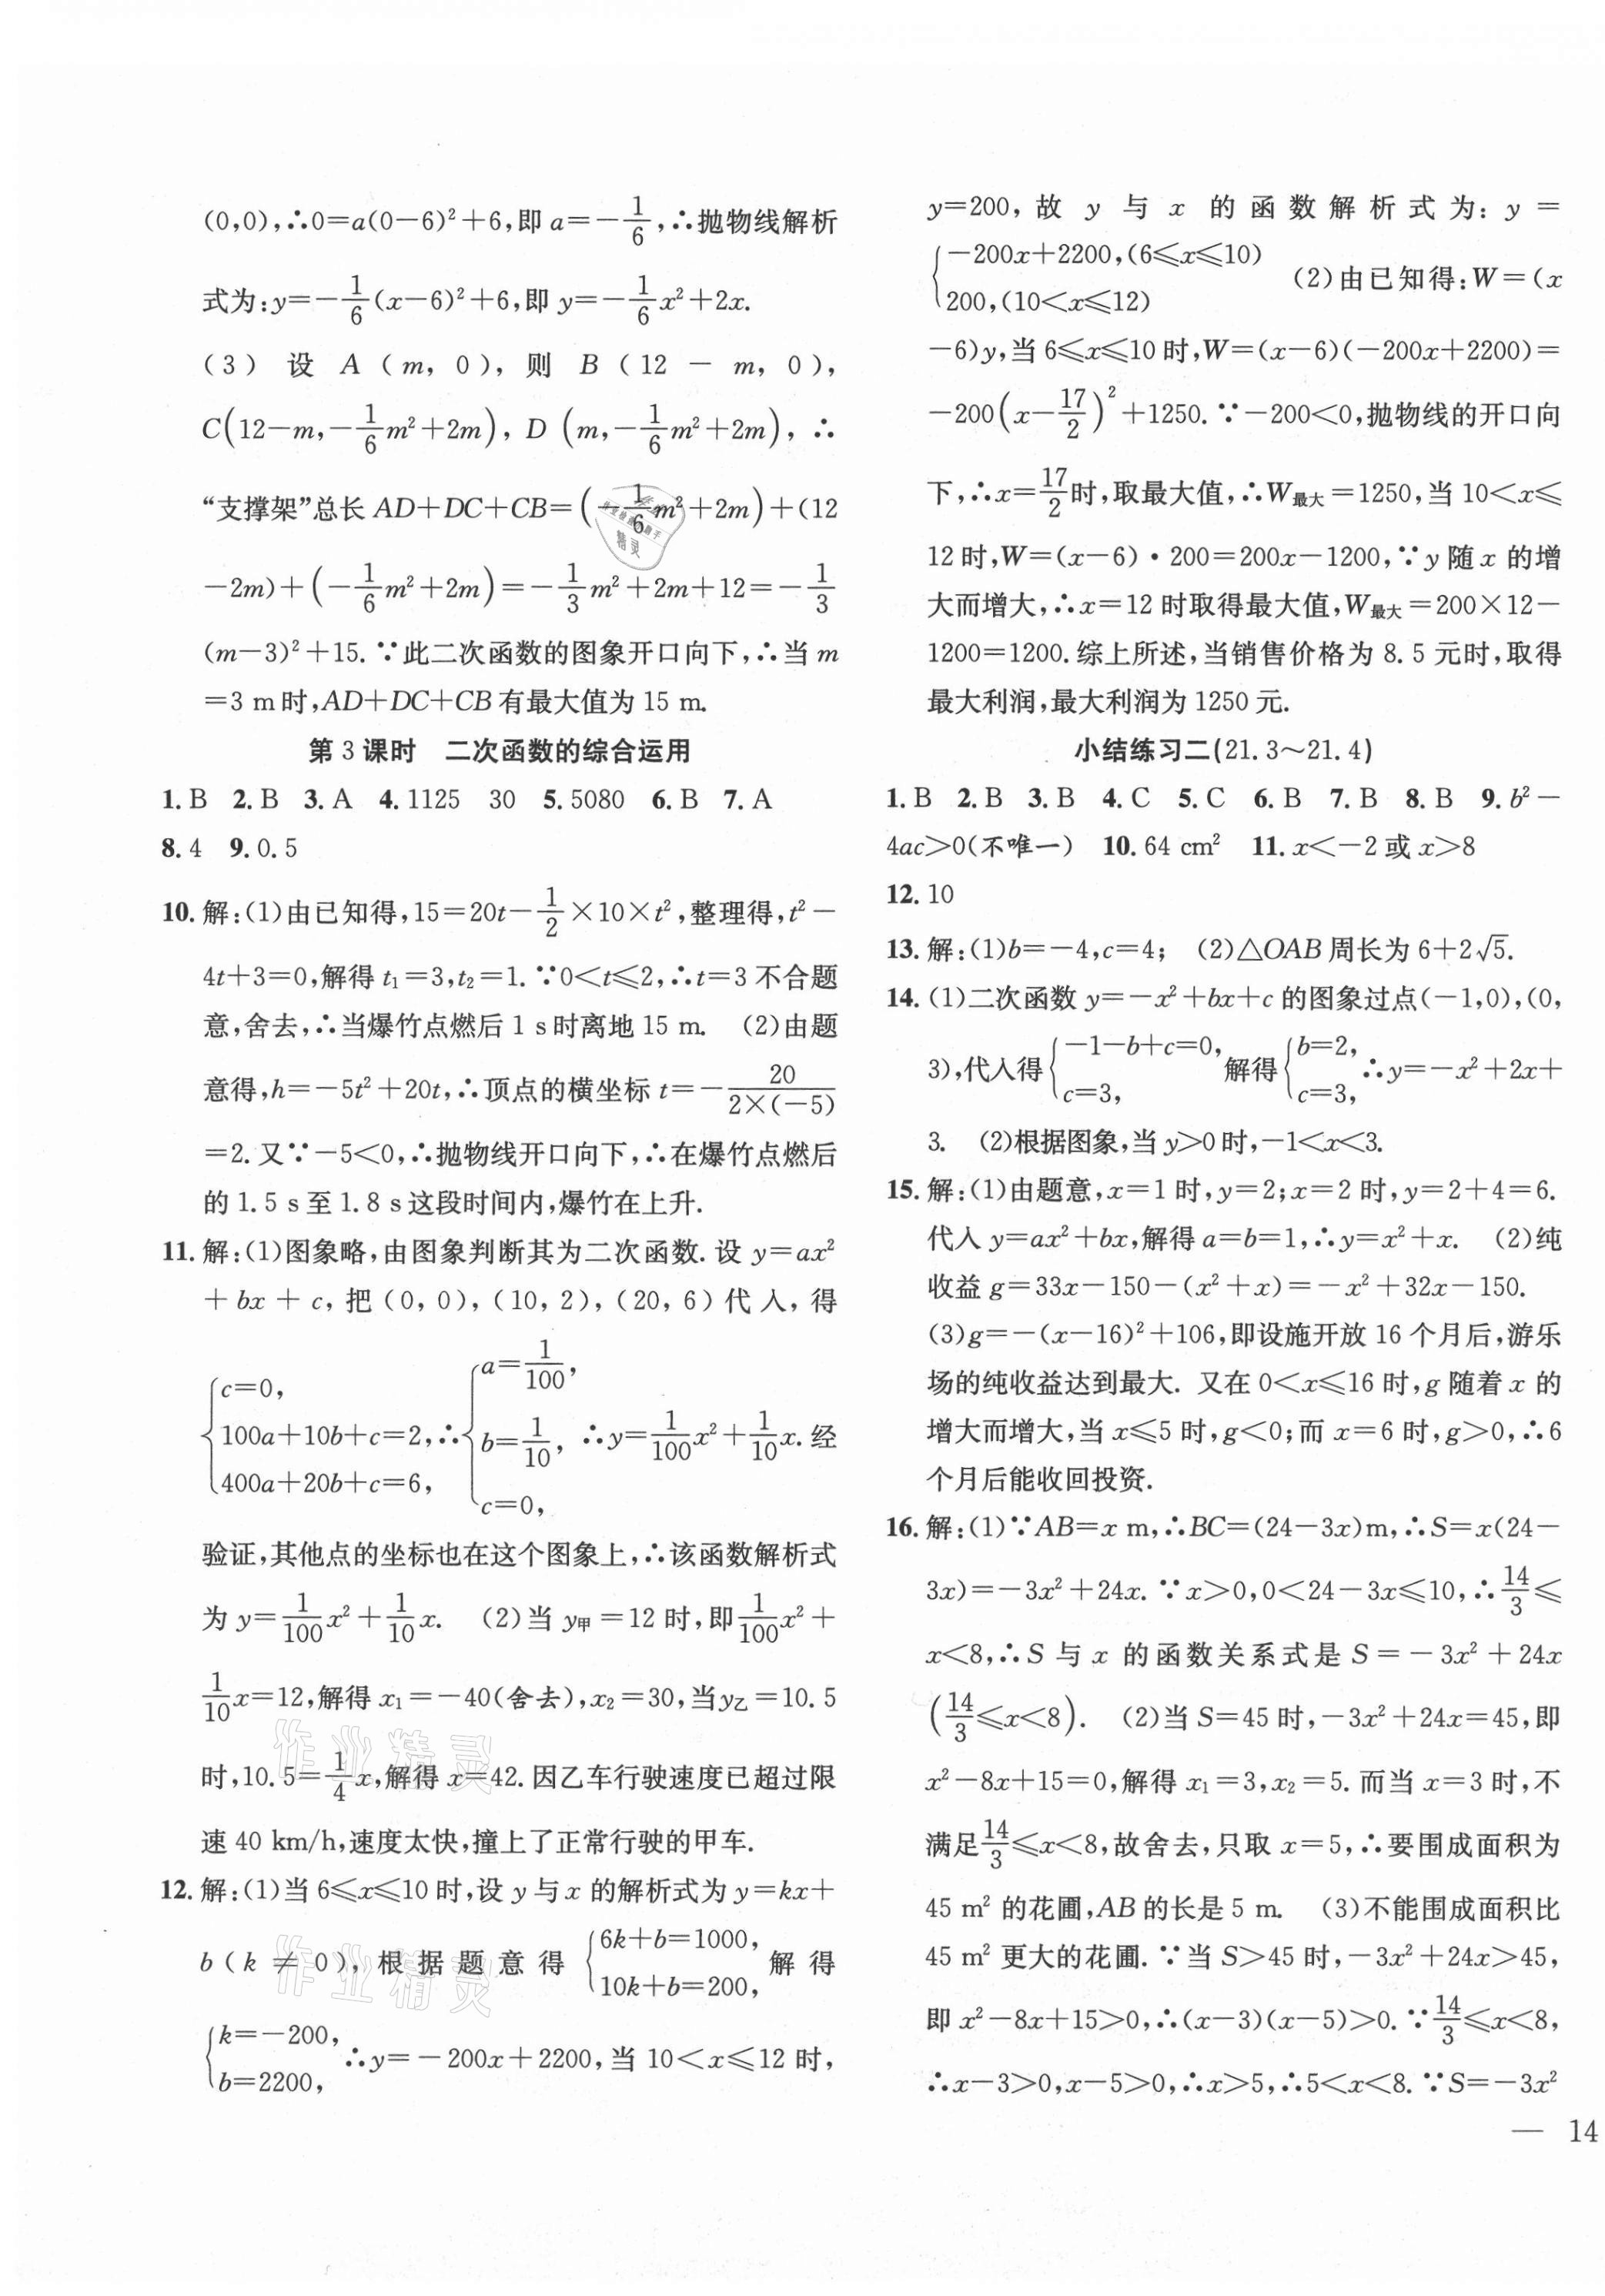 (0,0),∴0=a(0-6)²+6,即 a=-1/6,∴抛物线解析
式为:y=-1/6(x-6)²+6,即 y=-1/6x²+2x.
(3) 设 A(m, 0), 则 B(12-m, 0),
C(12-m,-1/6m²+2m), D(m,-1/6m²+2m), ∴
“支撑架”总长 AD+DC+CB=(-1/6m²+2m)+(12
-2m)+(-1/6m²+2m)=-1/3m²+2m+12=-1/3
(m-3)²+15.∵此二次函数的图象开口向下,∴当 m
=3 m时,AD+DC+CB 有最大值为 15 m.
第 3 课时 二次函数的综合运用
1. B 2. B 3. A 4. 1125 30 5. 5080 6. B 7. A
8. 4 9. 0.5
10. 解:(1)由已知得,15=20t-1/2×10×t²,整理得,t²-
4t+3=0,解得 t₁=3,t₂=1.∵0<t≤2,∴t=3 不合题
意,舍去,∴当爆竹点燃后 1 s时离地 15 m. (2)由题
意得,h=-5t²+20t,∴顶点的横坐标 t=-20/(2×(-5))
=2. 又∵-5<0,∴抛物线开口向下,∴在爆竹点燃后
的 1.5 s至 1.8 s这段时间内,爆竹在上升.
11. 解:(1)图象略,由图象判断其为二次函数. 设 y=ax²
+bx+c, 把(0,0),(10,2),(20,6)代入, 得
{c=0, 100a+10b+c=2, 400a+20b+c=6, ∴{a=1/100, b=1/10, c=0, ∴y=1/100x²+1/10x. 经
验证,其他点的坐标也在这个图象上,∴该函数解析式
为 y=1/100x²+1/10x. (2)当 y甲=12 时,即1/100x²+
1/10x=12,解得 x₁=-40(舍去),x₂=30,当y乙=10.5
时,10.5=1/4x,解得 x=42. 因乙车行驶速度已超过限
速 40 km/h,速度太快,撞上了正常行驶的甲车.
12. 解:(1)当 6≤x≤10 时,设 y 与 x 的解析式为 y=kx+
b(k≠0), 根据题意得 {6k+b=1000, 10k+b=200, 解得
{k=-200, b=2200, ∴y=-200x+2200,当 10<x≤12 时,
y=200, 故 y 与 x 的函数解析式为: y=
{-200x+2200,(6≤x≤10) 200,(10<x≤12) (2)由已知得:W=(x
-6)y,当 6≤x≤10 时,W=(x-6)(-200x+2200)=
-200(x-17/2)²+1250.∵-200<0,抛物线的开口向
下,∴x=17/2时,取最大值,∴W最大=1250,当 10<x≤
12 时,W=(x-6)·200=200x-1200,∵y 随 x 的增
大而增大,∴x=12 时取得最大值,W最大=200×12-
1200=1200. 综上所述,当销售价格为 8.5 元时,取得
最大利润,最大利润为 1250 元.
小结练习二(21.3~21.4)
1. B 2. B 3. B 4. C 5. C 6. B 7. B 8. B 9. b²-
4ac>0(不唯一) 10. 64 cm² 11. x<-2或 x>8
12. 10
13. 解:(1)b=-4,c=4; (2)△OAB 周长为 6+2√5.
14. (1)二次函数 y=-x²+bx+c 的图象过点(-1,0),(0,
3),代入得{-1-b+c=0, c=3, 解得{b=2, c=3, ∴y=-x²+2x+
3. (2)根据图象,当 y>0 时,-1<x<3.
15. 解:(1)由题意,x=1 时,y=2;x=2 时,y=2+4=6.
代入 y=ax²+bx,解得 a=b=1,∴y=x²+x. (2)纯
收益 g=33x-150-(x²+x)=-x²+32x-150.
(3)g=-(x-16)²+106,即设施开放 16 个月后,游乐
场的纯收益达到最大. 又在 0<x≤16 时,g 随着 x 的
增大而增大,当 x≤5 时,g<0;而 x=6 时,g>0,∴6
个月后能收回投资.
16. 解:(1)∵AB=x m,∴BC=(24-3x)m,∴S=x(24-
3x)=-3x²+24x.∵x>0,0<24-3x≤10,∴14/3≤
x<8,∴S 与 x 的函数关系式是 S=-3x²+24x
(14/3≤x<8). (2)当 S=45 时,-3x²+24x=45,即
x²-8x+15=0,解得 x₁=3,x₂=5. 而当 x=3 时,不
满足14/3≤x<8,故舍去,只取 x=5,∴要围成面积为
45 m² 的花圃,AB 的长是 5 m. (3)不能围成面积比
45 m² 更大的花圃.∵当 S>45 时,-3x²+24x>45,
即 x²-8x+15>0,∴(x-3)(x-5)>0.∵14/3≤x<8,
∴x-3>0,x-5>0,∴x>5,∴5<x<8.∵S=-3x²
— 14
作业精灵
作业精灵